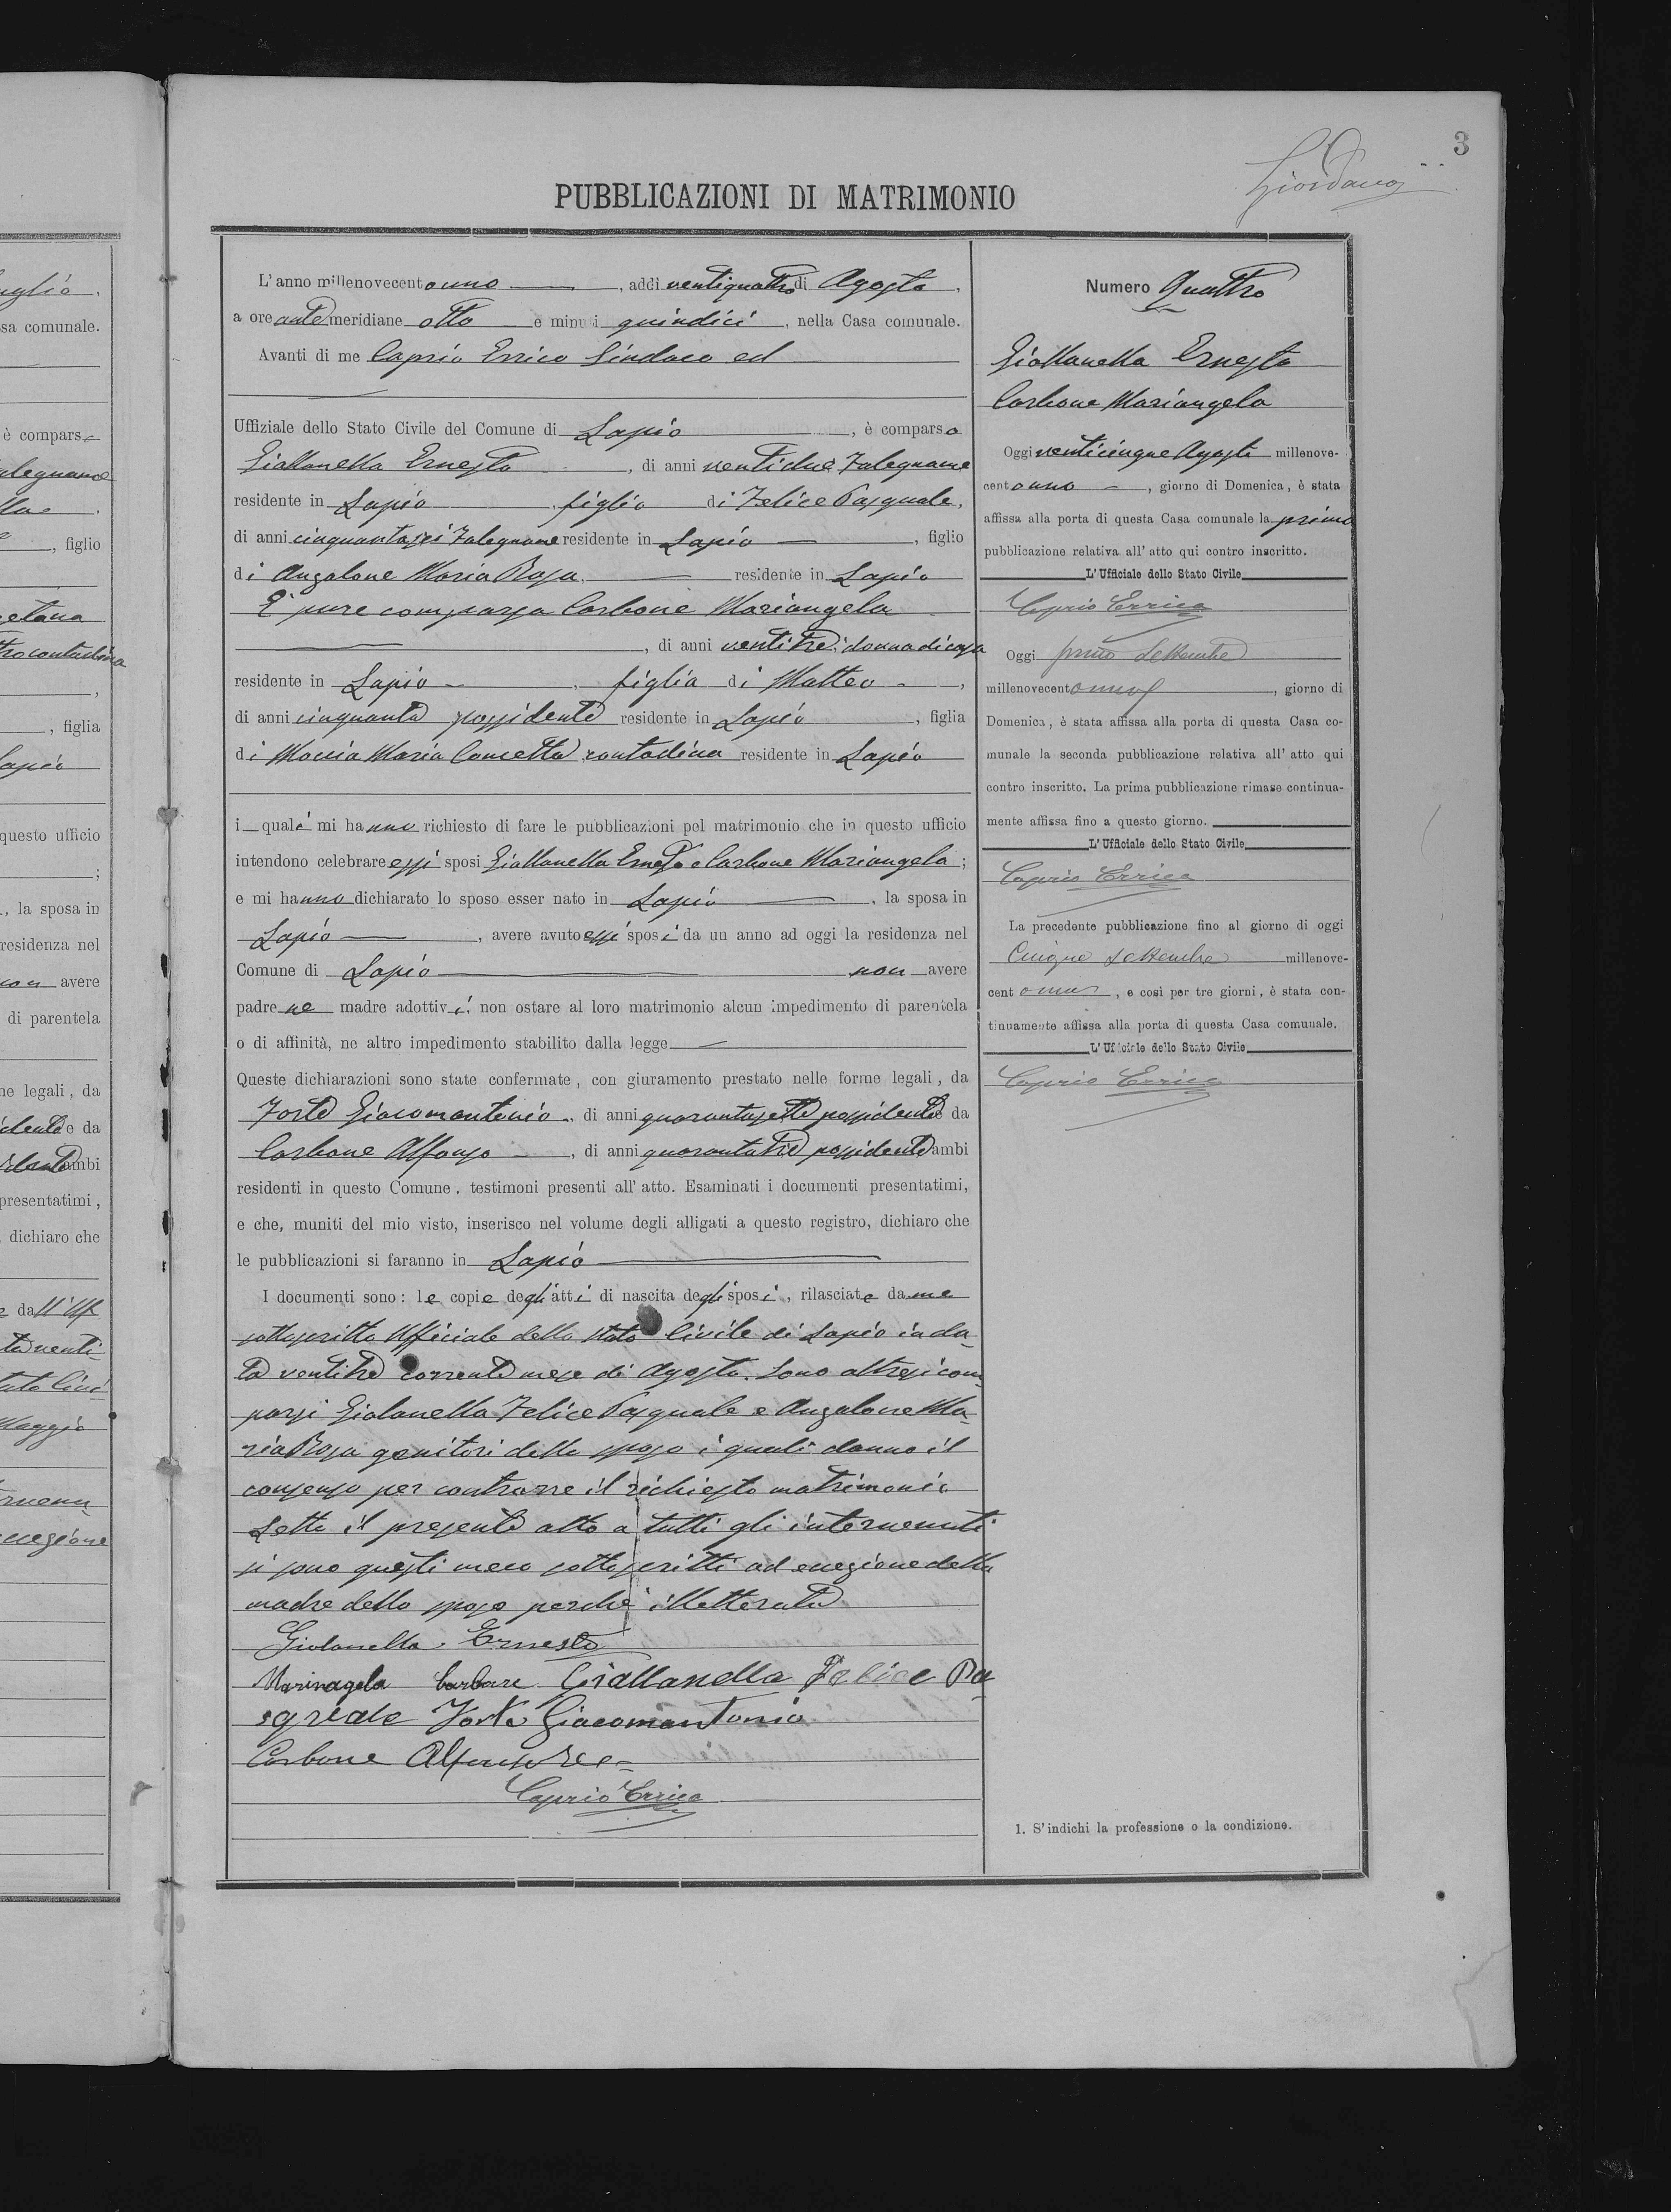 uglio
sa comunale.
è compars
alegname
, figlio
etana
contadina
, figlia
Lapio
questo ufficio
, la sposa in
residenza nel
non avere
di parentela
ne legali, da
idente e da
ambi
presentatimi,
dichiaro che
dall'Uff
venti-
Maggio
ccezione
3
Giordano
PUBBLICAZIONI DI MATRIMONIO
L'anno millenovecentouno, addì ventiquattro di Agosto,
a ore antemeridiane otto e minuti quindici, nella Casa comunale.
Avanti di me Caprio Errico Sindaco ed
Uffiziale dello Stato Civile del Comune di Lapio, è comparso
Giallanella Ernesto, di anni ventidue, Falegname
residente in Lapio, figlio di Felice Pasquale,
di anni cinquantasei Falegname residente in Lapio, figlio
di Anzalone Maria Rosa, residente in Lapio
È pure comparsa Carbone Mariangela
, di anni ventitre, donna di casa
residente in Lapio, figlia di Matteo,
di anni cinquanta possidente residente in Lapio, figlia
di Moccia Maria Concetta, contadina residente in Lapio
i quali mi hanno richiesto di fare le pubblicazioni pel matrimonio che in questo ufficio
intendono celebrare essi sposi Giallanella Ernesto e Carbone Mariangela;
e mi hanno dichiarato lo sposo esser nato in Lapio, la sposa in
Lapio, avere avuto essi sposi da un anno ad oggi la residenza nel
Comune di Lapio non avere
padre ne madre adottivi, non ostare al loro matrimonio alcun impedimento di parentela
o di affinità, ne altro impedimento stabilito dalla legge
Queste dichiarazioni sono state confermate, con giuramento prestato nelle forme legali, da
Forte Giacomantonio, di anni quarantasette possidente da
Carbone Alfonso, di anni quarantatre possidente ambi
residenti in questo Comune, testimoni presenti all'atto. Esaminati i documenti presentatimi,
e che, muniti del mio visto, inserisco nel volume degli alligati a questo registro, dichiaro che
le pubblicazioni si faranno in Lapio
I documenti sono: le copie degli atti di nascita degli sposi, rilasciate da me
sottoscritto Ufficiale dello stato Civile di Lapio in da-
ta ventitre corrente mese di Agosto. Sono altresi com-
parsi Giolanella Felice Pasquale e Anzalone Ma-
ria Rosa genitori dello sposo i quali danno il
consenso per contrarre il richiesto matrimonio
Letto il presente atto a tutti gli intervenuti
si sono questi meco sottoscritti ad eccezione della
madre dello sposo perchè illetterata
Giolanella Ernesto
Marinagela Carbone Giallanella Felice Pa
sqriale Forte Giacomantonio
Carbone Alfonso
Caprio Errico
Numero Quattro
Giallanella Ernesto
Carbone Mariangela
Oggi venticinque Agosto millenove-
centouno, giorno di Domenica, è stata
affissa alla porta di questa Casa comunale la prima
pubblicazione relativa all'atto qui contro inscritto.
L'Ufficiale dello Stato Civile
Caprio Errico
Oggi primo Settembre
millenovecentouno, giorno di
Domenica, è stata affissa alla porta di questa Casa co-
munale la seconda pubblicazione relativa all'atto qui
contro inscritto. La prima pubblicazione rimase continua-
mente affissa fino a questo giorno.
L'Ufficiale dello Stato Civile
Caprio Errico
La precedente pubblicazione fino al giorno di oggi
Cinque Settembre millenove-
centouno, e così per tre giorni, è stata con-
tinuamente affissa alla porta di questa Casa comunale.
L'Ufficiale dello Stato Civile
Caprio Errico
1. S'indichi la professione o la condizione.